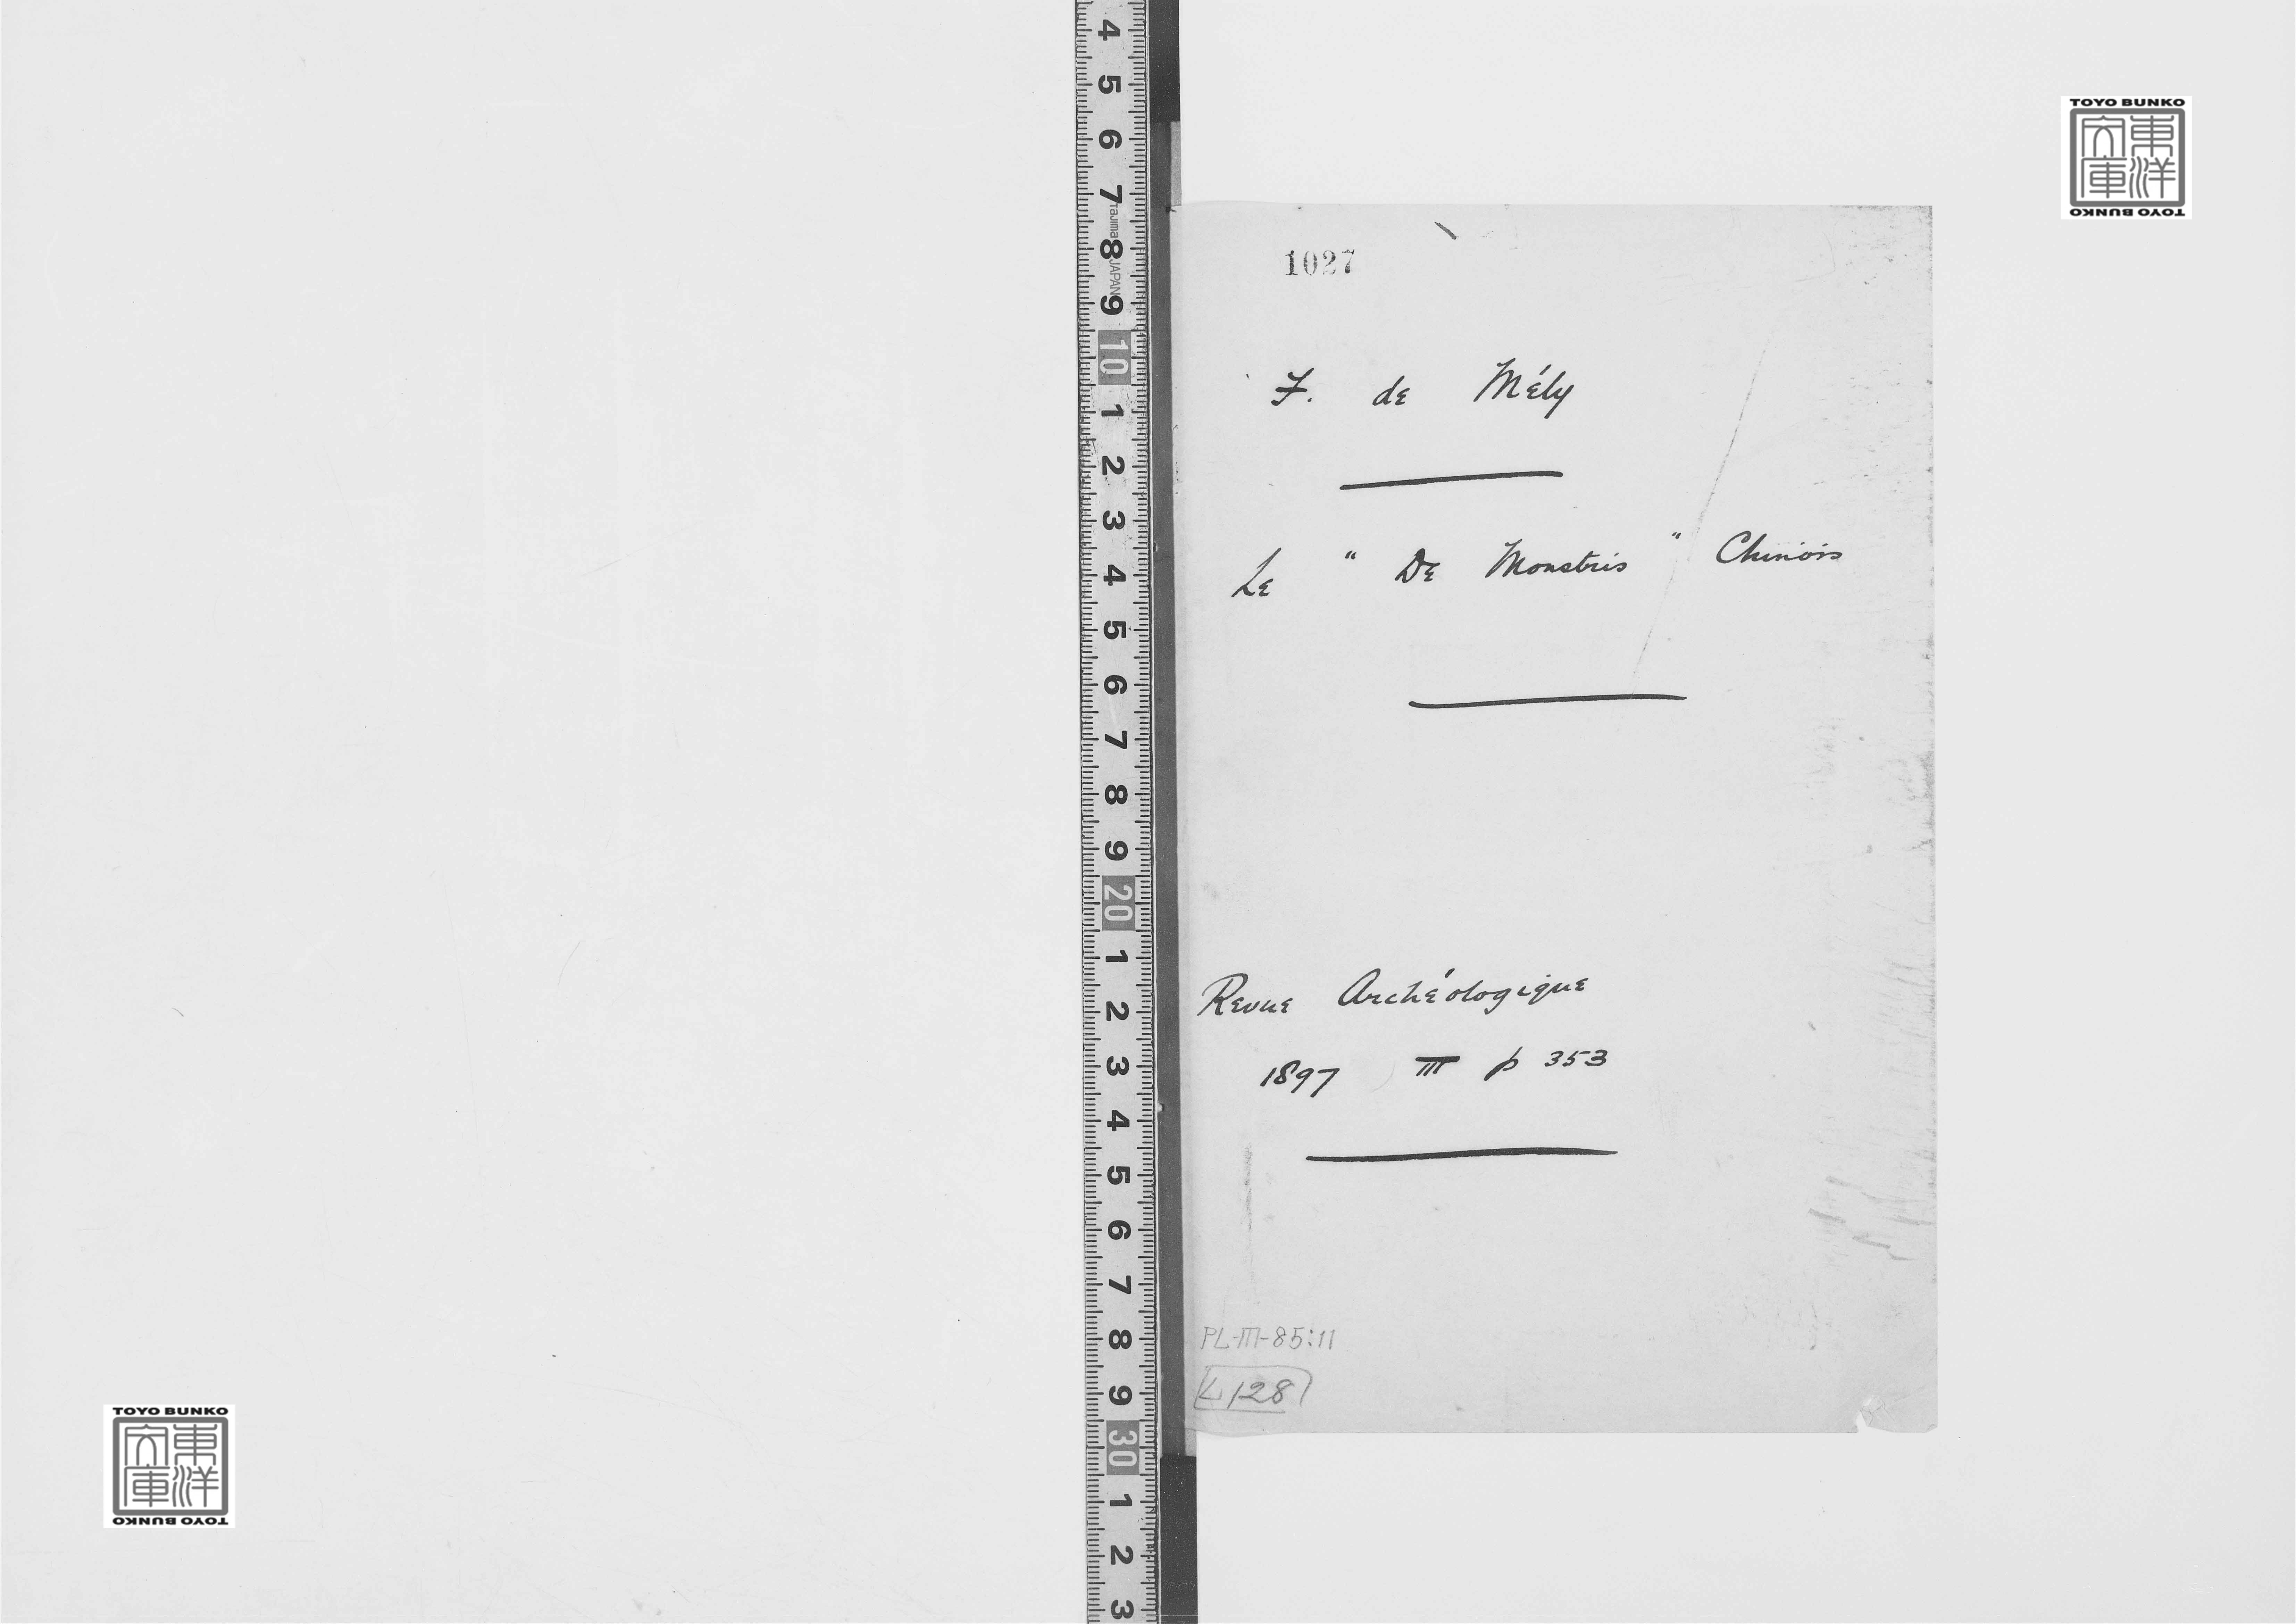 TOYO BUNKO
東洋文庫
TOYO BUNKO
1027
F. de Mély
Le " De Monstris " Chinois
Revue Archéologique
1897 III p 353
PL-III-85:11
128
4 5 6 7 8 9 10 1 2 3 4 5 6 7 8 9 20 1 2 3 4 5 6 7 8 9 30 1 2 3
Tajima JAPAN
TOYO BUNKO
東洋文庫
TOYO BUNKO